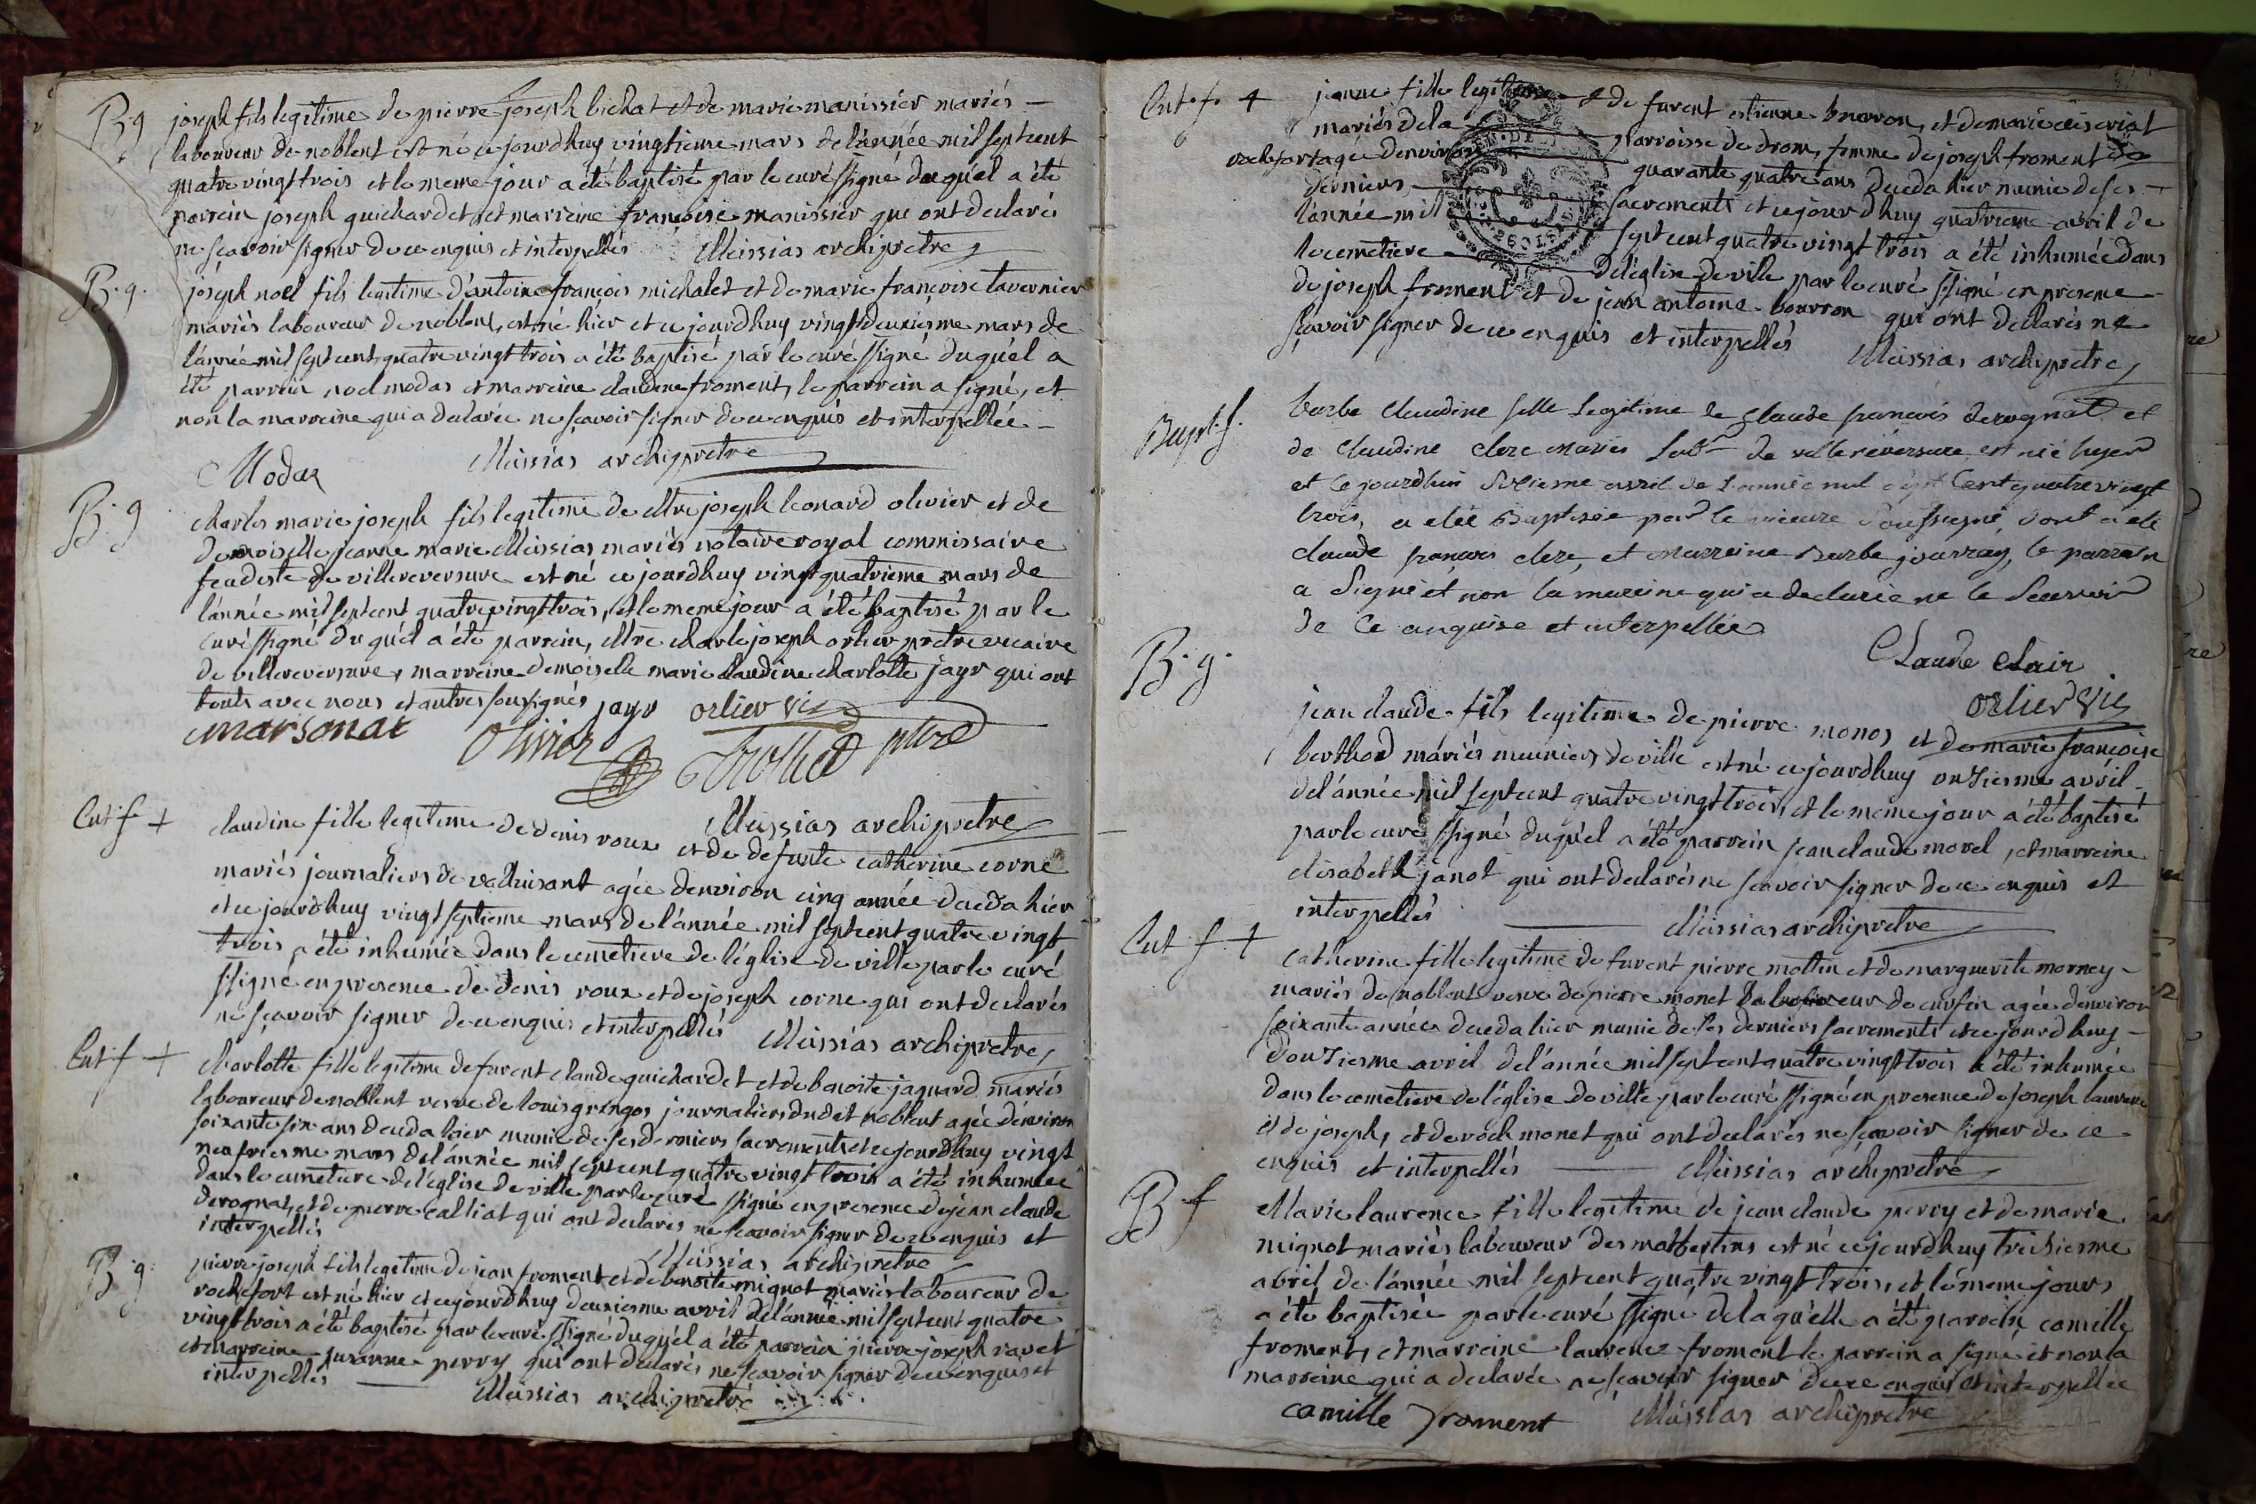 B. g joseph fils legitime de pierre joseph bichat et de marie manissier mariés
laboureur de noblent est né ce jourdhuy vingtieme mars de lánnée mil sept cent
quatre vingt trois et le meme jour a été baptisé par le curé ssigné du quél a été
parrein joseph guichardet, et marreine françoise manissier qui ont declarés
ne sçavoir signer de ce enquis et interpellés Messias archipretre
B. g. joseph noel fils legitime d'antoine françois michalet et de marie françoise tavernier
mariés laboureur de noblent, est né hier et ce jourdhuy vingt deuxiesme mars de
lánnée mil sept cent quatre vingt trois a été baptisé par le curé ssigné duquél a
été parrein noel modas et marreine claudine froment, le parrein a signé, et
non la marreine qui a declarée ne sçavoir signer de ce enquis et interpellée
Modas Messias archipretre
B. g charles marie joseph fils legitime de Mtre joseph leonard olivier et de
demoiselle jeanne marie Messias mariés notaire royal commissaire
feudiste de villereversure est né ce jourdhuy vingt quatrieme mars de
lánnée mil sept cent quatre vingt trois, et le meme jour a été baptisé par le
curé ssigné du quél a été parrein, Mtre charle joseph orlier pretre vicaire
de villereversure, marreine demoiselle marie claudine charlotte jayr qui ont
touts avec nous et autres soussignés jayr orlier vic
marsonat Olivier
Messias archipretre
Cut f + claudine fille legitime de denis roux et de defunte catherine corne
mariés journaliers de valluisant agée denviron cinq année deceda hier
et ce jourdhuy vingt septieme mars de lánnée mil sept cent quatre vingt
trois a été inhumée dans le cemetiere de léglise de ville par le curé
ssigné en presence de denis roux et de joseph corne qui ont declarés
ne sçavoir signer de ce enquis et interpellés Messias archipretre
Cut f + charlotte fille legitime de furent claude guichardet et de benoite jaquard mariés
laboureur de noblent vesve de louis gringos journaliers dudet noblent agée denviron
soixante six ans deceda hier munie de ses derniers sacrements et ce jourdhuy vingt
neufviesme mars de lánnée mil sept cent quatre vingt trois a été inhumée
dans le cemetiere de léglise de ville par le curé ssigné en presence de jean claude
derognat, et de pierre calliat qui ont declarés ne sçavoir signer de ce enquis et
interpellés Messias archipretre
B. g. pierre joseph fils legitime de jean froment et de benoite mignot mariés laboureur de
rochefort est né hier et ce jourdhuy deuxiesme avril de lánnée mil sept cent quatre
vingt trois a été baptisé par le curé ssigné duquél a été parrein pierre joseph ravet
et marreine suzanne perry qui ont declarés ne sçavoir signer de ce enquis et
interpellés Messias archipretre
Cut. f. + jeanne fille legitime de furent estienne bourron, et de marie
mariés de la parroisse de drom, femme de joseph froment de
rochefort agée denviron quarante quatre ans deceda hier munie de ses
derniers sacrements et ce jourdhuy quatrieme avril de
lánnée mil sept cent quatre vingt trois a été inhumée dans
le cemetiere de léglise de ville par le curé ssigné en presence
de joseph froment et de jean antoine bourron qui ont declarés ne
sçavoir signer de ce enquis et interpellés Messias archipretre
Bapt. f. barbe claudine fille legitime de claude francois derognat et
de claudine clerc mariés labr de villereversure est née hyer
et ce jourdhui sixieme avril de l'année mil sept cent quatre vingt
trois, a etée baptisée par le vicaire soussigné, dont a été
claude francois clerc, et marreine Barbe jouvray, le parrein
a signé et non la marreine qui a declarée ne le sçavoir
de ce enquise et interpellée
Claude Clair
orlier vic
B. g. jean claude fils legitime de pierre monos et de marie françoise
berthod mariés meuniers de ville est né ce jourdhuy onziesme avril
de lánnée mil sept cent quatre vingt trois, et le meme jour a été baptisé
par le curé ssigné duquél a été parrein jean claude morel, et marreine
elisabeth janot qui ont declarés ne sçavoir signer de ce enquis et
interpellés Messias archipretre
Cut. f. + catherine fille legitime de furent pierre mottin et de marguerite morney
mariés de noblent vesve de pierre monet laboureur de curfin agée denviron
soixante années deceda hier munie de ses derniers sacrements et ce jourdhuy
douziesme avril de lánnée mil sept cent quatre vingt trois a été inhumée
dans le cemetiere de léglise de ville par le curé ssigné en presence de joseph laurent
et de joseph, et de roch monet qui ont declarés ne sçavoir signer de ce
enquis et interpellés Messias archipretre
B f Marie laurence fille legitime de jean claude perry et de marie
mignot mariés laboureur des est né ce jourdhuy treiziesme
avril de lánnée mil sept cent quatre vingt trois, et le meme jours
a été baptisée par le curé ssigné de la quélle a été parrein camille
froment, et marreine laurence froment le parrein a signé et non la
marreine qui a declarée ne sçavoir signer de ce enquis et interpellée
camille froment Messias archipretre